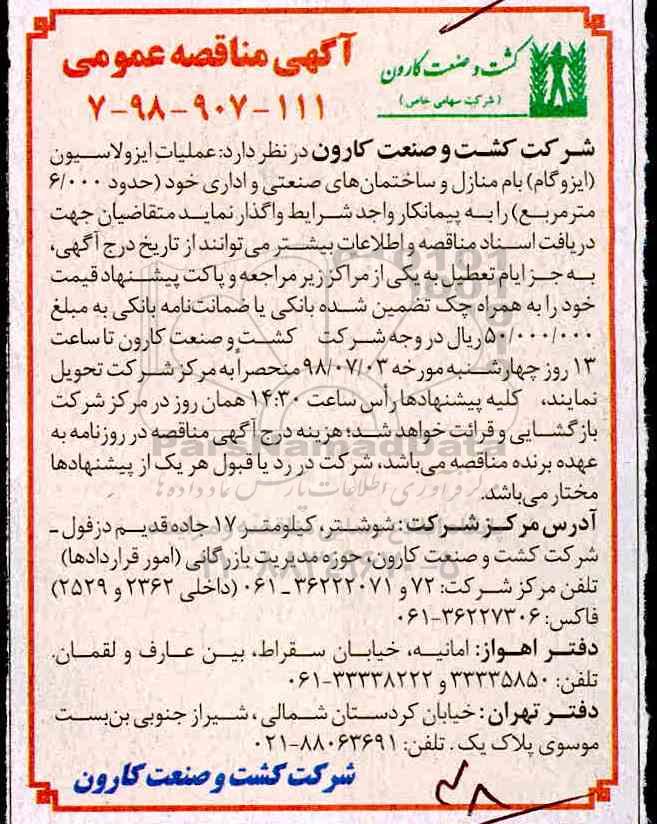 آگهی مناقصه عمومی
۷-۹۸-۹۰۷-۱۱۱
کشت و صنعت کارون
(شرکت سهامی خاص)
شرکت کشت و صنعت کارون در نظر دارد: عملیات ایزولاسیون
(ایزوگام) بام منازل و ساختمان‌های صنعتی و اداری خود (حدود ۶/۰۰۰
مترمربع) را به پیمانکار واجد شرایط واگذار نماید متقاضیان جهت
دریافت اسناد مناقصه و اطلاعات بیشتر می‌توانند از تاریخ درج آگهی،
به جز ایام تعطیل به یکی از مراکز زیر مراجعه و پاکت پیشنهاد قیمت
خود را به همراه چک تضمین شده بانکی یا ضمانت‌نامه بانکی به مبلغ
۵۰/۰۰۰/۰۰۰ ریال در وجه شرکت کشت و صنعت کارون تا ساعت
۱۳ روز چهارشنبه مورخه ۹۸/۰۷/۰۳ منحصراً به مرکز شرکت تحویل
نمایند، کلیه پیشنهادها رأس ساعت ۱۴:۳۰ همان روز در مرکز شرکت
بازگشایی و قرائت خواهد شد؛ هزینه درج آگهی مناقصه در روزنامه به
عهده برنده مناقصه می‌باشد، شرکت در رد یا قبول هر یک از پیشنهادها
مختار می‌باشد.
آدرس مرکز شرکت: شوشتر، کیلومتر ۱۷ جاده قدیم دزفول ـ
شرکت کشت و صنعت کارون، حوزه مدیریت بازرگانی (امور قراردادها)
تلفن مرکز شرکت: ۷۲ و ۳۶۲۲۲۰۷۱ ـ ۰۶۱ (داخلی ۲۳۶۲ و ۲۵۲۹)
فاکس: ۳۶۲۲۷۳۰۶-۰۶۱
دفتر اهواز: امانیه، خیابان سقراط، بین عارف و لقمان.
تلفن: ۳۳۳۳۵۸۵۰ و ۳۳۳۳۸۲۲۲-۰۶۱
دفتر تهران: خیابان کردستان شمالی، شیراز جنوبی بن‌بست
موسوی پلاک یک. تلفن: ۸۸۰۶۳۶۹۱-۰۲۱
شرکت کشت و صنعت کارون
ParsNamadData